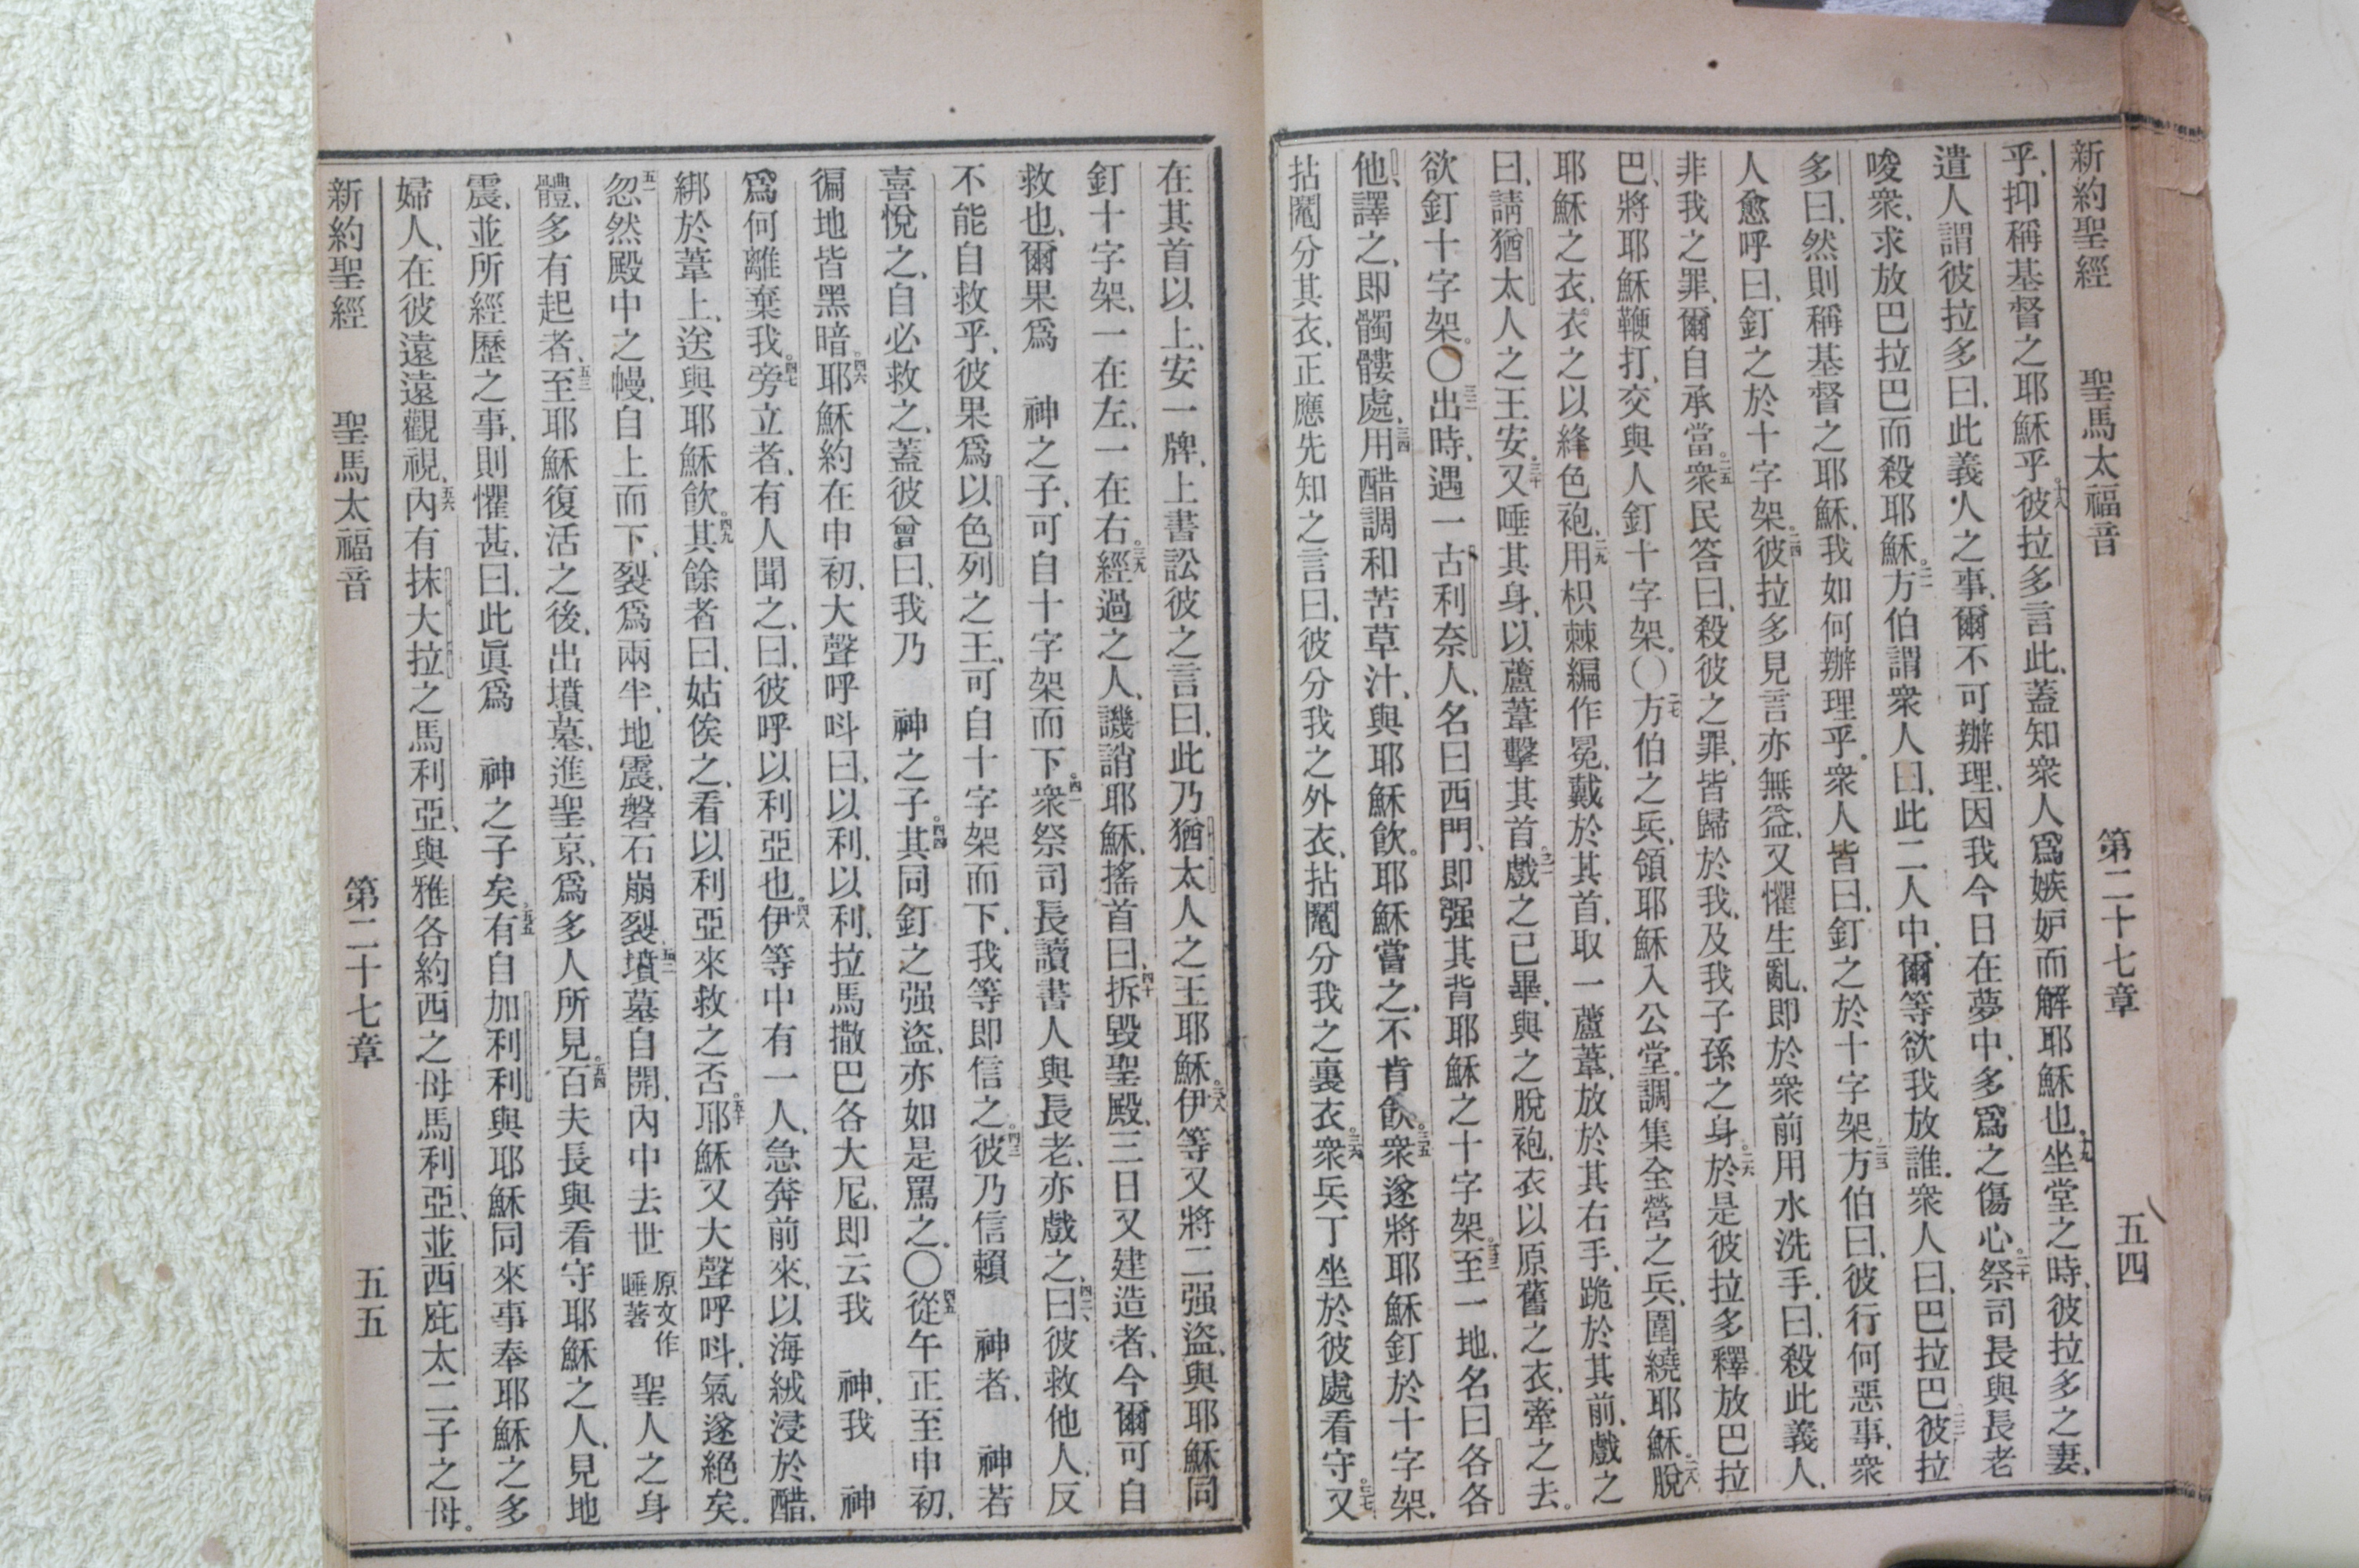 新約聖經 聖馬太福音 第二十七章 五四
乎、抑稱基督之耶穌乎。十八彼拉多言此、蓋知衆人爲嫉妒而解耶穌也。十九坐堂之時、彼拉多之妻、
遣人謂彼拉多曰、此義人之事、爾不可辦理、因我今日在夢中、多爲之傷心。二十祭司長與長老
唆衆、求放巴拉巴而殺耶穌。二一方伯謂衆人曰、此二人中、爾等欲我放誰。衆人曰、巴拉巴。二二彼拉
多曰、然則稱基督之耶穌、我如何辦理乎。衆人皆曰、釘之於十字架。二三方伯曰、彼行何惡事、衆
人愈呼曰、釘之於十字架。二四彼拉多見言亦無益、又懼生亂、即於衆前用水洗手、曰、殺此義人、
非我之罪、爾自承當。二五衆民答曰、殺彼之罪、皆歸於我、及我子孫之身。二六於是彼拉多釋放巴拉
巴、將耶穌鞭打、交與人釘十字架。〇二七方伯之兵、領耶穌入公堂。調集全營之兵、圍繞耶穌。二八脫
耶穌之衣、衣之以絳色袍、二九用枳棘編作冕、戴於其首、取一蘆葦、放於其右手、跪於其前、戲之
曰、請猶太人之王安。三十又唾其身、以蘆葦擊其首。三一戲之已畢、與之脫袍、衣以原舊之衣、牽之去。
欲釘十字架。〇三二出時、遇一古利奈人、名曰西門、即强其背耶穌之十字架。三三至一地、名曰各各
他、譯之、即髑髏處、三四用醋調和苦草汁、與耶穌飮。耶穌嘗之、不肯飮。三五衆遂將耶穌釘於十字架、
拈鬮分其衣、正應先知之言曰、彼分我之外衣、拈鬮分我之裏衣。三六衆兵丁坐於彼處看守。三七又
在其首以上、安一牌、上書訟彼之言曰、此乃猶太人之王耶穌。三八伊等又將二强盜、與耶穌同
釘十字架、一在左、一在右。三九經過之人、譏誚耶穌、搖首曰、四十拆毀聖殿、三日又建造者、今爾可自
救也、爾果爲 神之子、可自十字架而下。四一衆祭司長讀書人與長老、亦戲之、曰、四二彼救他人、反
不能自救乎、彼果爲以色列之王、可自十字架而下、我等即信之。四三彼乃信賴 神者、 神若
喜悅之、自必救之、蓋彼曾曰、我乃 神之子。四四其同釘之强盜、亦如是罵之。〇四五從午正至申初、
徧地皆黑暗。四六耶穌約在申初、大聲呼呌曰、以利、以利、拉馬撒巴各大尼、即云我 神、我 神
爲何離棄我。四七旁立者、有人聞之、曰、彼呼以利亞也。四八伊等中有一人、急奔前來、以海絨浸於醋、
綁於葦上、送與耶穌飮。四九其餘者曰、姑俟之、看以利亞來救之否。五十耶穌又大聲呼呌、氣遂絕矣。
五一忽然殿中之幔、自上而下、裂爲兩半、地震、磐石崩裂、五二墳墓自開、內中去世原文作睡著聖人之身
體、多有起者、五三至耶穌復活之後、出墳墓、進聖京、爲多人所見。五四百夫長與看守耶穌之人、見地
震、並所經歷之事、則懼甚、曰、此眞爲 神之子矣。五五有自加利利與耶穌同來事奉耶穌之多
婦人、在彼遠遠觀視、五六內有抹大拉之馬利亞、與雅各約西之母馬利亞、並西庇太二子之母。
新約聖經 聖馬太福音 第二十七章 五五